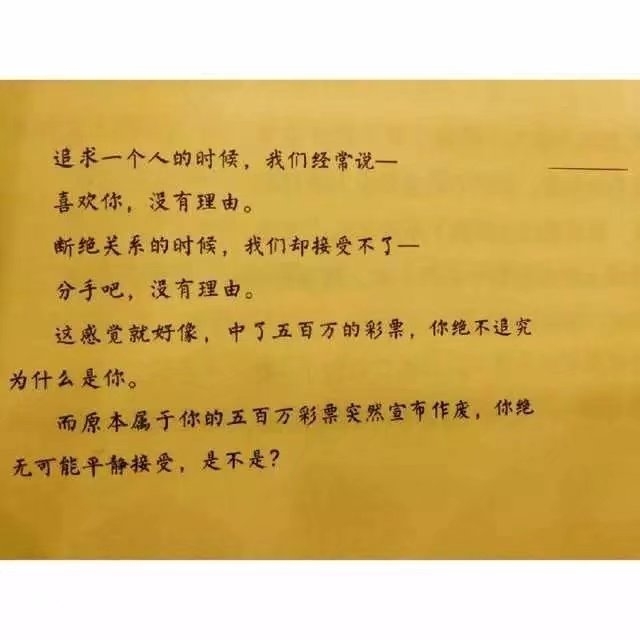 追求一个人的时候，我们经常说—
喜欢你，没有理由。
断绝关系的时候，我们却接受不了—
分手吧，没有理由。
这感觉就好像，中了五百万的彩票，你绝不追究
为什么是你。
而原本属于你的五百万彩票突然宣布作废，你绝
无可能平静接受，是不是？